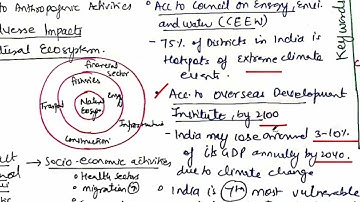 to Anthropogenic Activities
verse Impacts
tural Ecosystem.
financial
sector
fisheries
energy
Natural
Ecosys
Transport
Infrastructure
Construction
→ Socio-economic activities
• Health sectors
• migration
• Acc to Council on Energy, Envi.
and water (CEEW)
- 75% of Districts in India is
Hotspots of extreme climate
events.
• Acc. to overseas Development
Institute, by 2100
- India may lose around 3-10%
of its GDP annually by 2040.
due to climate change
- India is 7th most vulnerable
Keywords